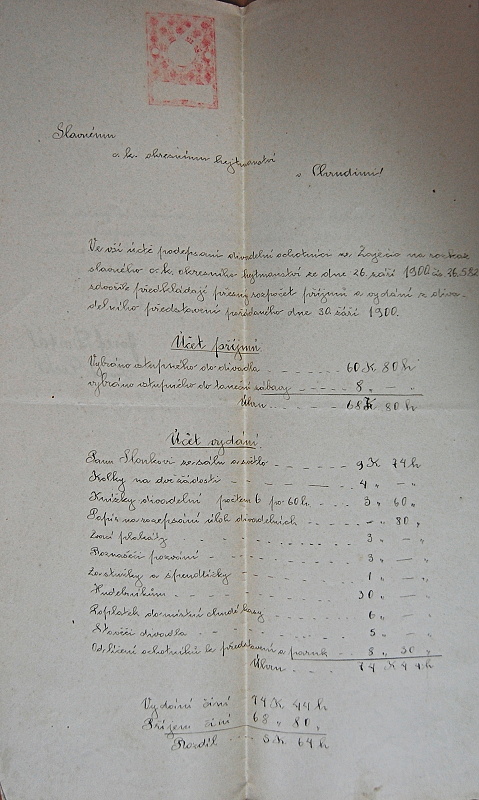 Slavnému
c. k. okresnímu hejtmanství
v Chrudimi!
Ve vší úctě podepsaní divadelní ochotníci ze Zaječic na rozkaz
slavného c. k. okresního hejtmanství ze dne 26. září 1900 čís. 36.582
zdvořile předkládají přesný rozpočet příjmů a vydání z diva-
delního představení pořádaného dne 30. září 1900.
Účet příjmů
Vybráno vstupného do divadla 60 K 80 h
vybráno vstupného do taneční zábavy 8 „ — „
Úhrn 68 K 80 h
Účet vydání
Panu Slonkovi za sál a světlo 9 K 74 h
Kolky na dvě žádosti 4 „ — „
Knížky divadelní počtem 6 po 60 h. 3 „ 60 „
Papír na rozepsání úloh divadelních — „ 80 „
Za plakáty 3 „ — „
Roznašeči pozvání 3 „ — „
Za vlásničky a špendlíčky 1 „ — „
Hudebníkům 30 „ — „
Poplatek do místní chudé kasy 6 „ — „
Stavěči divadla 5 „ — „
Odlíčení ochotníků ku představení a paruk 8 „ 30 „
Úhrn 74 K 44 h
Vydání činí 74 K 44 h
Příjem činí 68 „ 80 „
Rozdíl 5 K 64 h